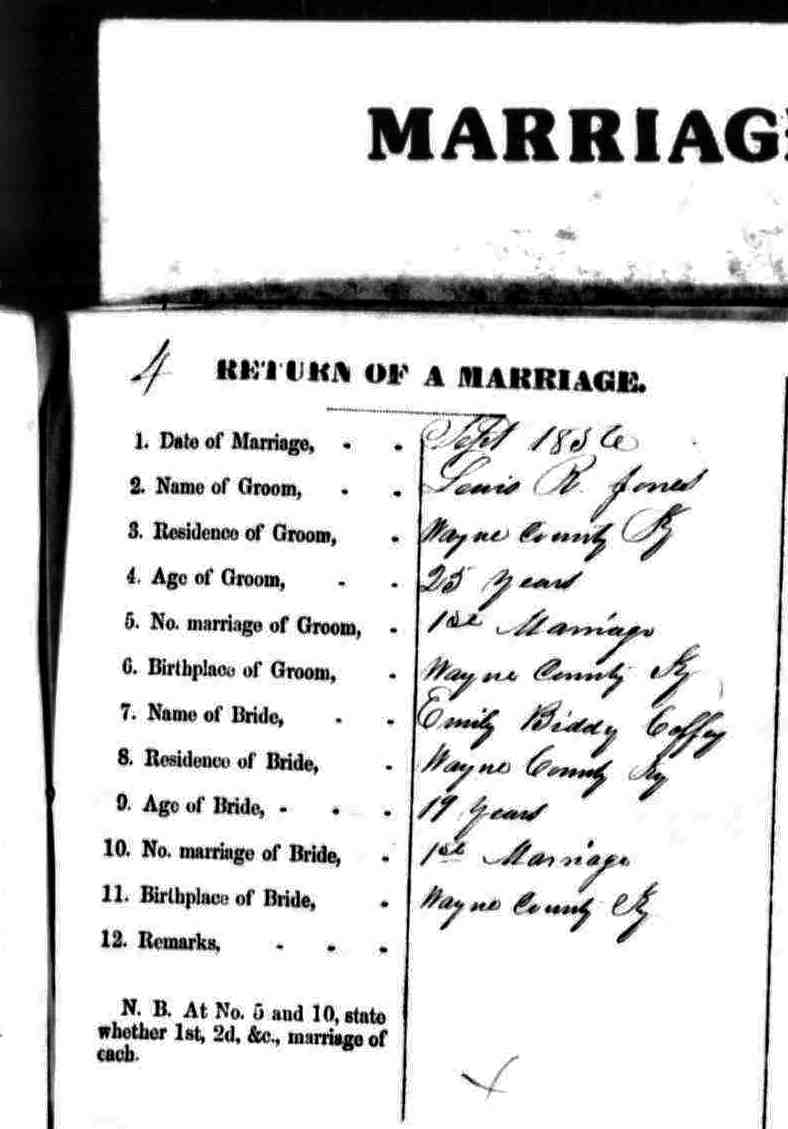 MARRIAG
4
RETURN OF A MARRIAGE.
1. Date of Marriage, - - Sept 1856
2. Name of Groom, - - Louis R. Jones
3. Residence of Groom, - Wayne County Ky
4. Age of Groom, - - 25 years
5. No. marriage of Groom, - 1st Marriage
6. Birthplace of Groom, - Wayne County Ky
7. Name of Bride, - - Emily Biddy Coffey
8. Residence of Bride, - Wayne County Ky
9. Age of Bride, - - - 19 years
10. No. marriage of Bride, - 1st Marriage
11. Birthplace of Bride, - Wayne County Ky
12. Remarks, - - -
N. B. At No. 5 and 10, state
whether 1st, 2d, &c., marriage of
each.